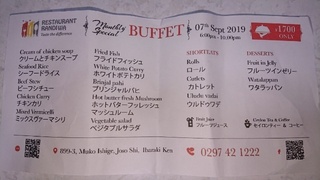 RESTAURANT
RANGIWA
Monthly
Special
BUFFET
07th Sept 2019
6:00pm - 10:00pm
¥1700
ONLY
Cream of chicken soup
クリームとチキンスープ
Seafood Rice
シーフードライス
Beef Stew
ビーフシチュー
Chicken Curry
チキンカリ
Mixed
ミックスヴァーマシリ
Fried Fish
フライドフィッシュ
White Potato Curry
ホワイトポテトカリ
Brinjal paji
ブリンジャルパジ
Hot butter fried Mushroom
ホットバターフレッシュ
マッシュルーム
Vegetable salad
ベジタブルサラダ
SHORTEATS
Rolls
ロール
Cutlets
カトレット
Ulundu vada
ウルドゥワデ
Fruit Juice
フルーツジュース
DESSERTS
Fruit in Jelly
フルーツインゼリー
Watalappan
ワタラッパン
Ceylon Tea & Coffee
セイロンティー & コーヒー
899-3, Muko Ishige, Joso Shi, Ibaraki Ken
0297 42 1222